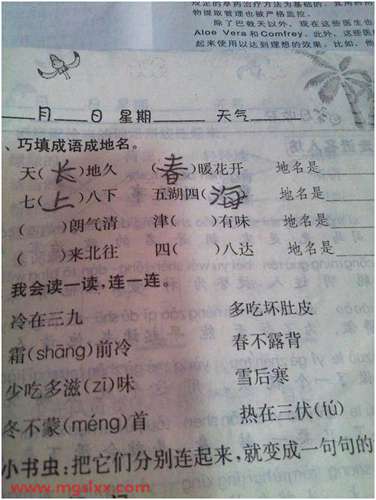 物提取管理也被严格监控。
除了巴戟天以外，现在这些医生也
Aloe Vera和Comfrey。此外，这些医
起来使用以达到理想的效果。比如，他
月 日 星期 天气
、巧填成语成地名。
天(长)地久 (春)暖花开 地名是
七(上)八下 五湖四(海) 地名是
( )朗气清 津( )有味 地名是
( )来北往 四( )八达 地名是
我会读一读,连一连。
冷在三九 多吃坏肚皮
霜(shāng)前冷 春不露背
少吃多滋(zī)味 雪后寒
冬不蒙(méng)首 热在三伏(fú)
小书虫:把它们分别连起来,就变成一句句的
www.mgslxx.com